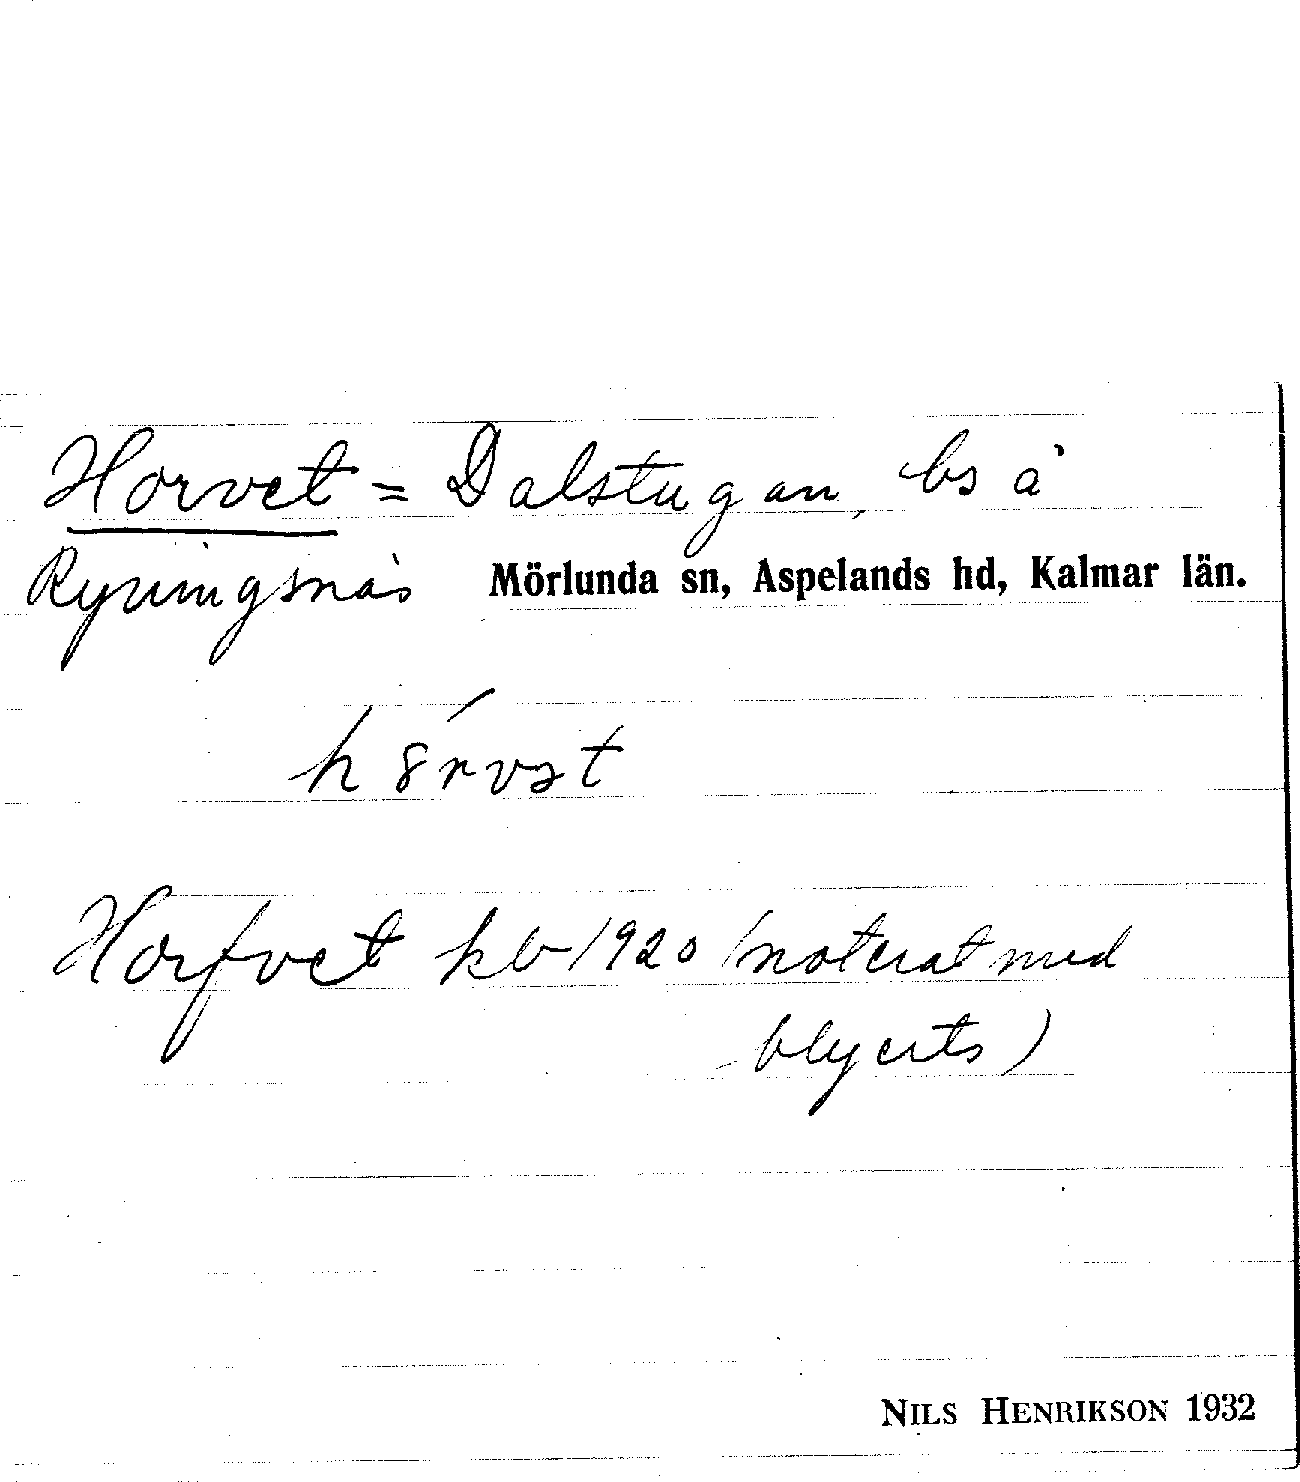 Horvet = Dalstugan, bs å
Ryningsnäs Mörlunda sn, Aspelands hd, Kalmar län.
Horfvet kb 1920 (noterat med
blyerts)
NILS HENRIKSON 1932